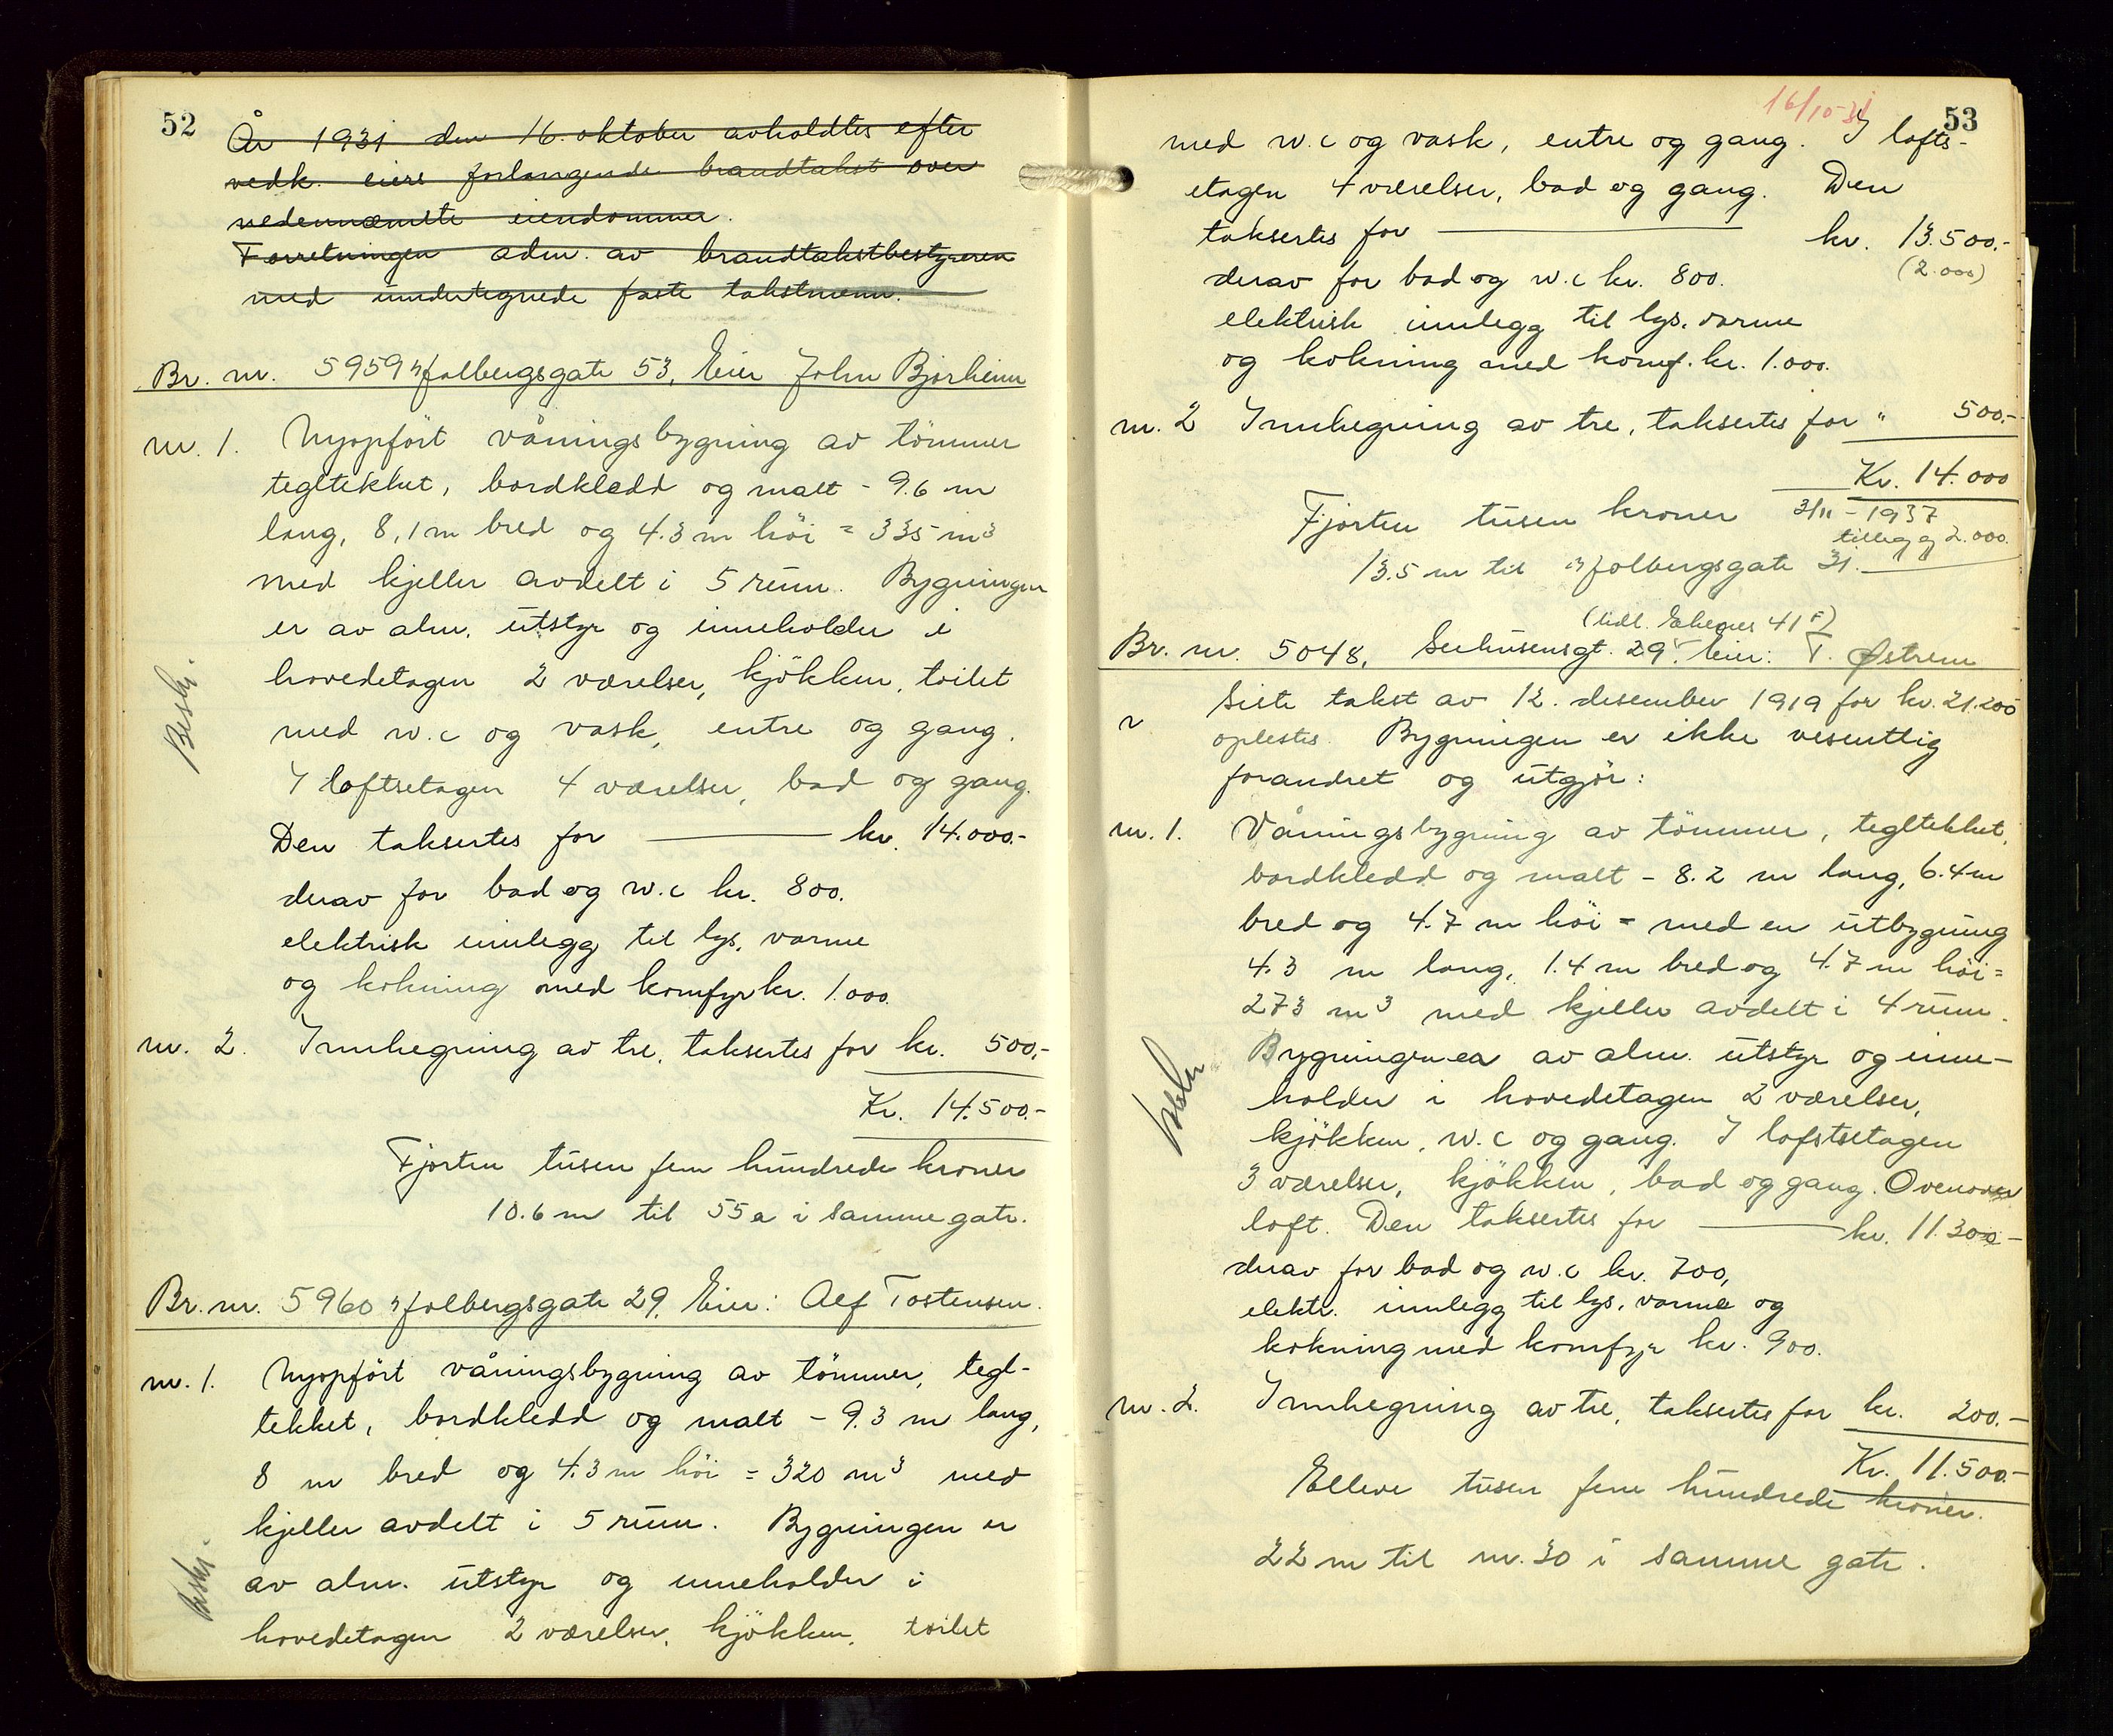 52
År 1931 den 16. oktober avholdtes efter
vedk. eiers forlangende brandtakst over
nedennævnte eiendommer.
Forretningen adm. av brandtakstbestyreren
med undertegnede faste takstmenn.
Br. nr. 5959 Holbergsgate 53, Eier John Bjorheim
nr. 1. Nyopført våningsbygning av tömmer
tegltekket, bordkledd og malt - 9.6 m
lang, 8,1 m bred og 4.3 m höi = 335 m³
med kjeller avdelt i 5 rum. Bygningen
er av alm. utstyr og inneholder i
hovedetagen 2 værelser, kjökken, toilet
med w.c og vask, entre og gang.
I loftsetagen 4 værelser, bad og gang.
Den taksertes for kr. 14.000.-
derav for bad og w.c kr. 800.
elektrisk innlegg til lys, varme
og kokning med komfyr kr. 1.000.
nr. 2. Innhegning av tre, taksertes for kr. 500,-
Kr. 14.500.-
Fjorten tusen fem hundrede kroner
10.6 m til 55a i samme gate.
Beskr.
Br. nr. 5960 Holbergsgate 29, Eier: Alf Tostensen.
nr. 1. Nyopfört våningsbygning av tömmer, tegl-
tekket, bordkledd og malt - 9.3 m lang,
8 m bred og 4.3 m höi = 320 m³ med
kjeller avdelt i 5 rum. Bygningen er
av alm. utstyr og inneholder i
hovedetagen 2 værelser, kjökken, toilet
Beskr.
16/10-31
53
med w.c og vask, entre og gang. I lofts-
etagen 4 værelser, bad og gang. Den
taksertes for kr. 13.500.-
(2.000)
derav for bad og w.c kr. 800.
elektrisk innlegg til lys, varme
og kokning med komf. kr. 1.000.
nr. 2 Innhegning av tre, taksertes for " 500.-
Kr. 14.000
Fjorten tusen kroner
3/11 - 1937
tillegg 2.000.
13.5 m til Holbergsgate 31.
Br. nr. 5048, Seehusensgt. 29, Eier: T. Østrem
Siste takst av 12. desember 1919 for kr. 21.200
oplestes. Bygningen er ikke vesentlig
forandret og utgjör:
nr. 1. Våningsbygning av tömmer, tegltekket,
bordkledd og malt - 8.2 m lang, 6.4 m
bred og 4.7 m höi = med en utbygning
4.3 m lang, 1.4 m bred og 4.7 m höi =
273 m³ med kjeller avdelt i 4 rum.
Bygningen er av alm. utstyr og inne-
holder i hovedetagen 2 værelser,
kjökken, w.c og gang. I loftsetagen
3 værelser, kjökken, bad og gang. Ovenover
loft. Den taksertes for kr. 11.300-
derav for bad og w.c kr. 700,
elektr. innlegg til lys, varme og
kokning med komfyr kr. 900.
nr. 2. Innhegning av tre, taksertes for kr. 200.-
Kr. 11.500.-
Elleve tusen fem hundrede kroner.
22 m til nr. 30 i samme gate.
beskr.